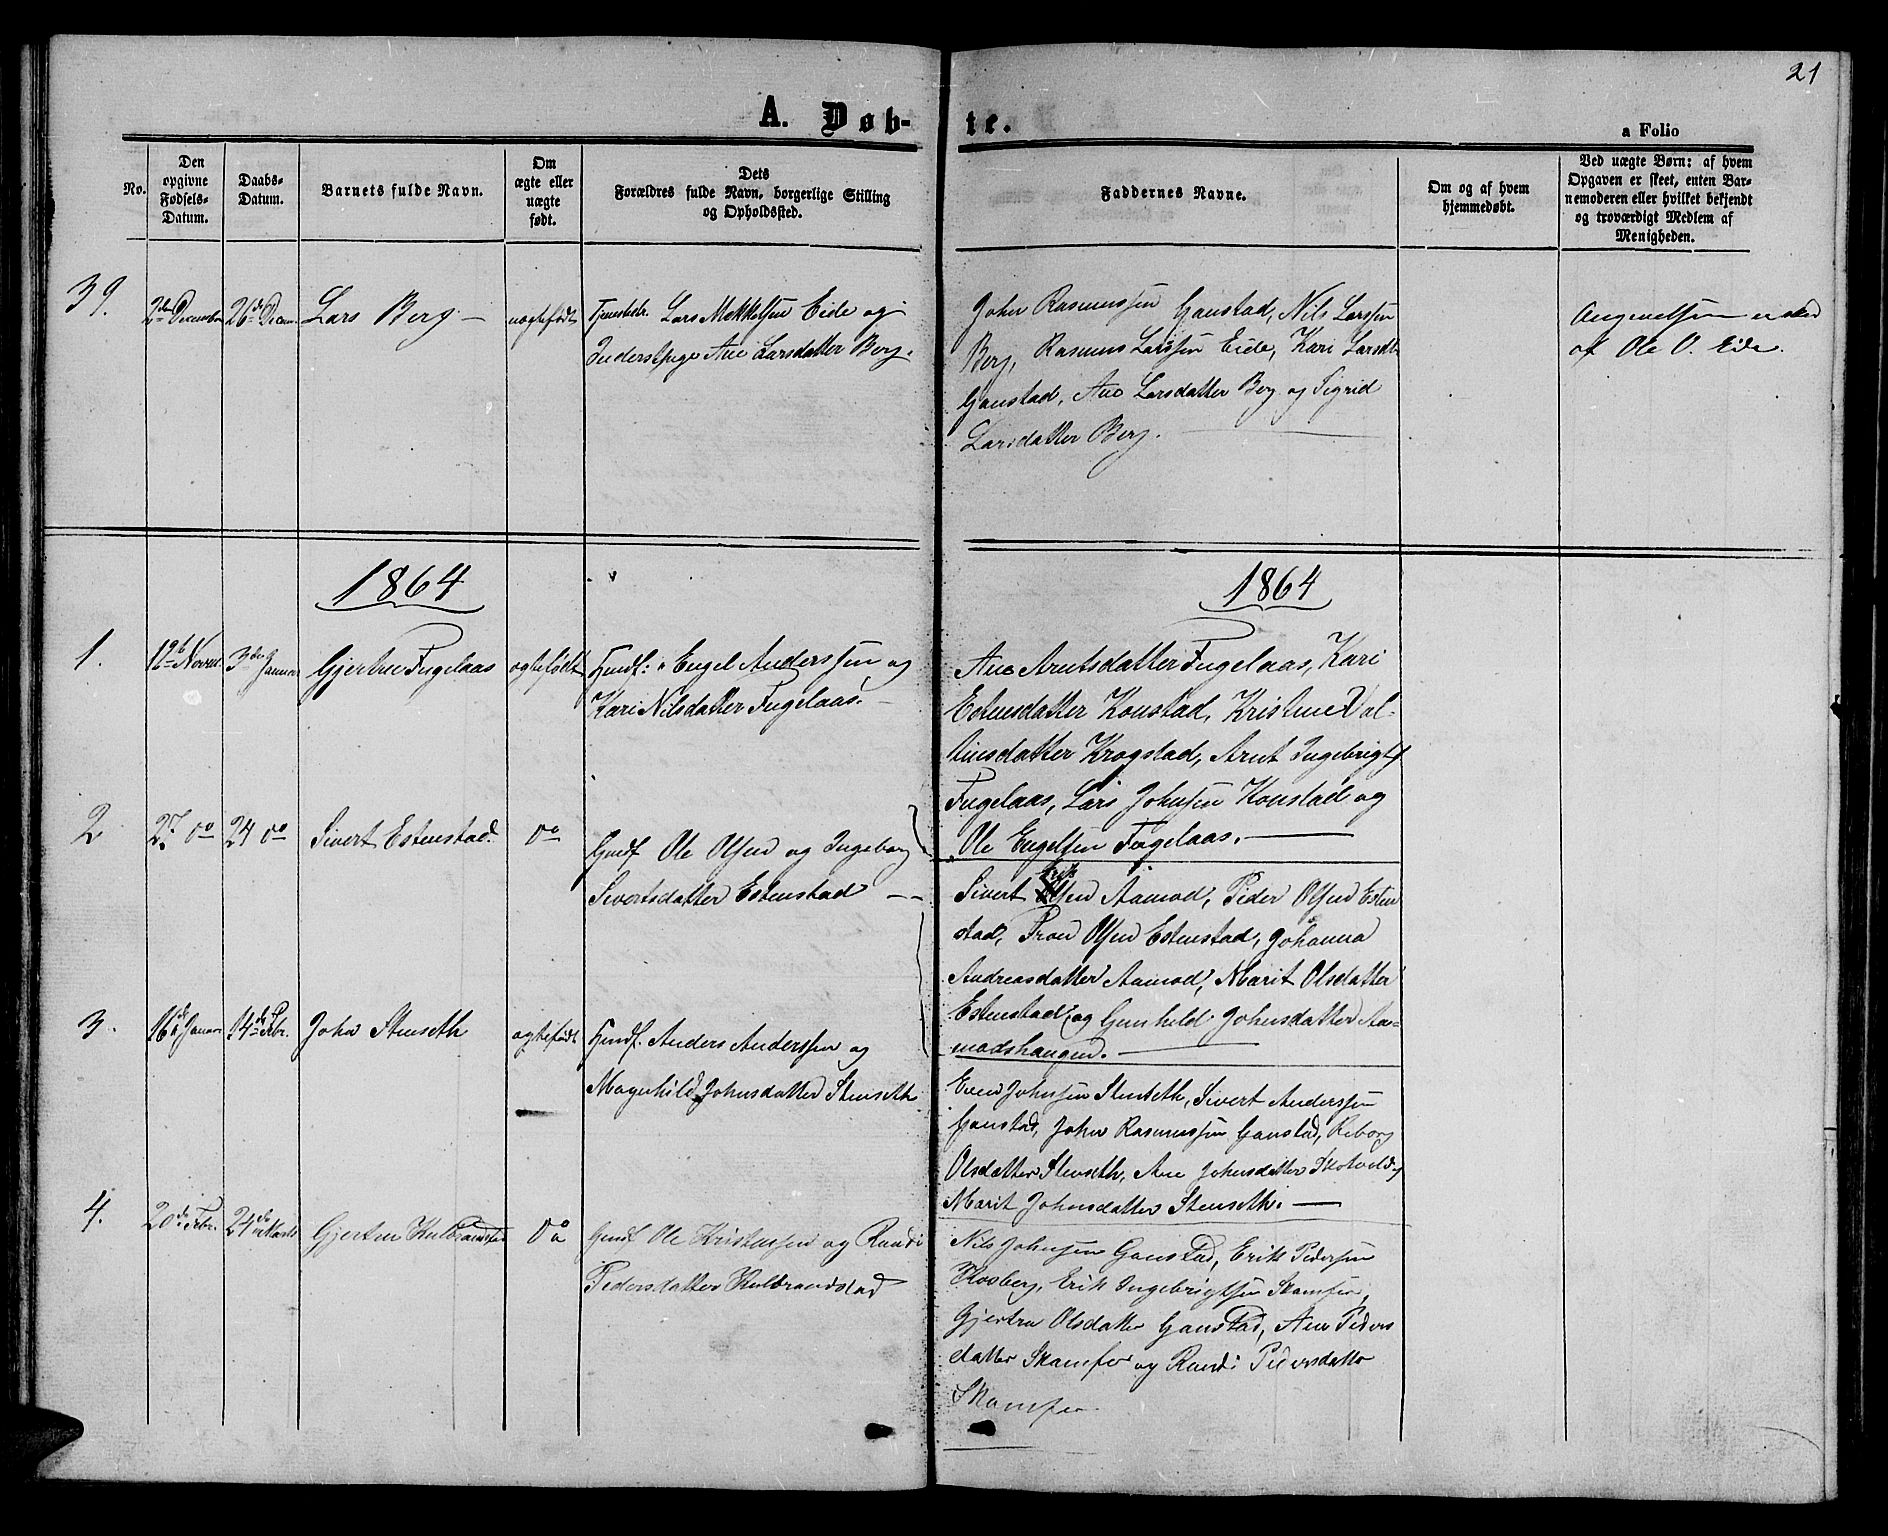 21
A. Døb-te.
a Folio
No.
Den opgivne Fødsels-Datum.
Daabs-Datum.
Barnets fulde Navn.
Om ægte eller uægte født.
Dets Forældres fulde Navn, borgerlige Stilling og Opholdssted.
Faddernes Navne.
Om og af hvem hjemmedøbt.
Ved uægte Børn: af hvem Opgaven er skeet, enten Bar-nemoderen eller hvilket bekjendt og troværdigt Medlem af Menigheden.
39.
2den December
26de Decem.
Lars Berg
uægtefødt
Lars Mekkelsen Eide og
Inderstpige Ane Larsdatter Berg.
John Rasmussen Ganstad, Nils Larssen
Berg, Rasmus Larssen Eide, Kari Larsdt
Ganstad, Ane Larsdatter Berg og Sigrid
Larsdatter Berg.
Angivelsen er sked
af Ole O. Eide.
1864
1864
1.
12te Novem.
3die Januar
Gjertru Fugelaas
ægtefødt
Gmdf: Engel Anderssen og
Kari Nilsdatter Fugelaas.
Ane Arntsdatter Fugelaas, Kari
Estensdatter Konstad, Kristine Val-
tinsdatter Krogstad, Arnt Ingebrigts
Fugelaas, Lars Johnsen Konstad og
Ole Engelsen Fugelaas.
2
27. do
24 do
Sivert Estenstad.
do
Gmdf Ole Olsen og Ingeborg
Sivertsdatter Estenstad
Sivert Aamod, Peder Olsen Esten
stad, Tron Olsen Estenstad, Johanna
Andreasdatter Aamod, Marit Olsdatter
Estenstad og Gunhild Johnsdatter Aa-
modshaugen.
3.
16de Januar
14de Febr.
John Stenseth
ægtefødt
Gmdf. Anders Anderssen og
Magnhild Johnsdatter Stenseth
Even Johnsen Stenseth, Sivert Anderssen
Ganstad, John Rasmussen Ganstad, Kiborg
Olsdatter Stenseth, Ane Johnsdatter Flotveld og
Marit Johnsdatter Stenseth.
4.
20de Febr.
24de Marts
Gjertru Hulbrandstad
do
Gmdf Ole Kristensen og Randi
Pedersdatter Hulbrandstad
Nils Johnsen Ganstad, Erik Pedersen
Flosberg, Erik Ingebrigtsen Skamfer,
Gjertru Olsdatter Ganstad, Ane Peders
datter Skamfer og Randi Pedersdatter
Skamfer.